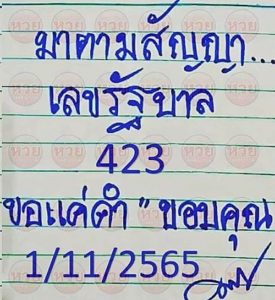 มาตามสัญญา...
เลขรัฐบาล
423
ขอแค่คำ "ขอบคุณ
1/11/2565